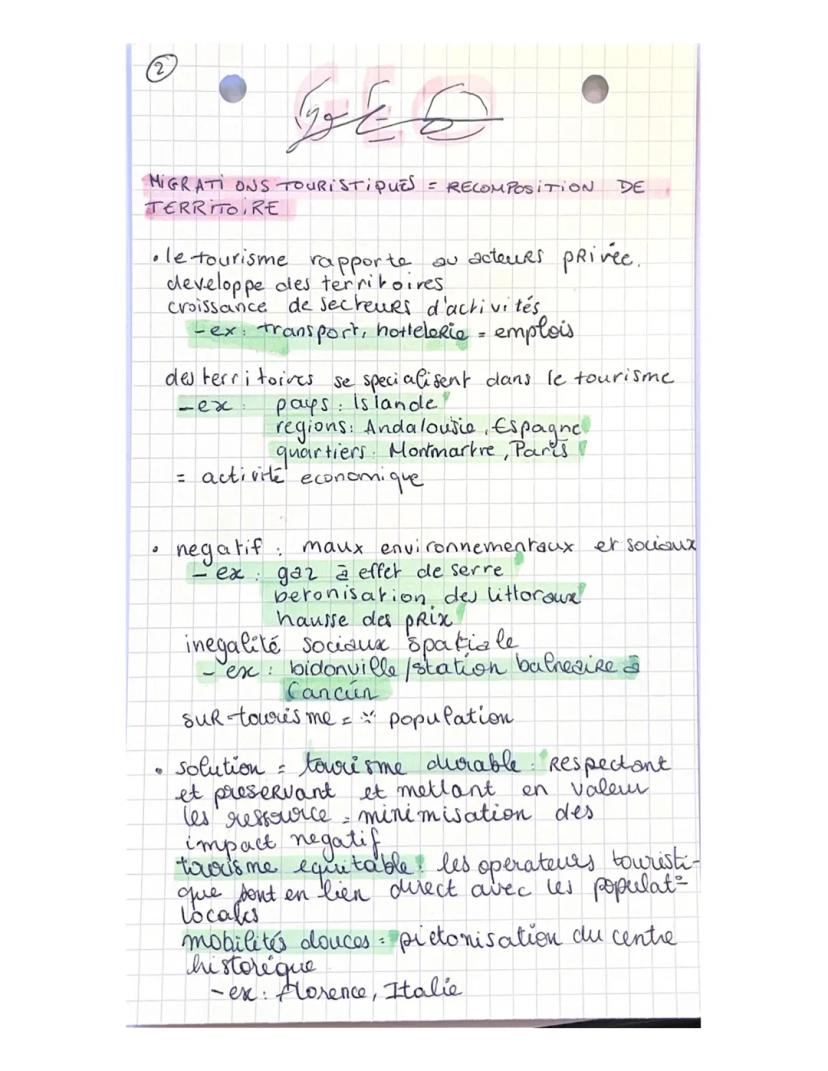 ②
GEO
MiGRATiONS TOURiSTiQUES = RECOMPOSiTiON DE
TERRiTOiRE
• le tourisme rapporte au acteurs pRivée.
developpe des territoires
croissance de secteurs d'activités
- ex : transport, hottelerie = emplois
des territoires se specialisent dans le tourisme
- ex : pays : Islande
regions : Andalousie, Espagne
quartiers : Montmartre, Paris
= activité economique
• negatif : maux environnementaux et sociaux
- ex : gaz à effet de serre
betonisation des littoraux
hausse des pRix
inegalité sociaux spatiale
- ex : bidonville / station balneaire à
Cancún
suR-tourisme = population
• solution = tourisme durable : Respectant
et preservant et mettant en valeur
les ressource = minimisation des
impact negatif
tourisme equitable : les operateurs touristi-
que sont en lien direct avec les populat°
locales
mobilités douces = pietonisation du centre
historique
- ex : Florence, Italie